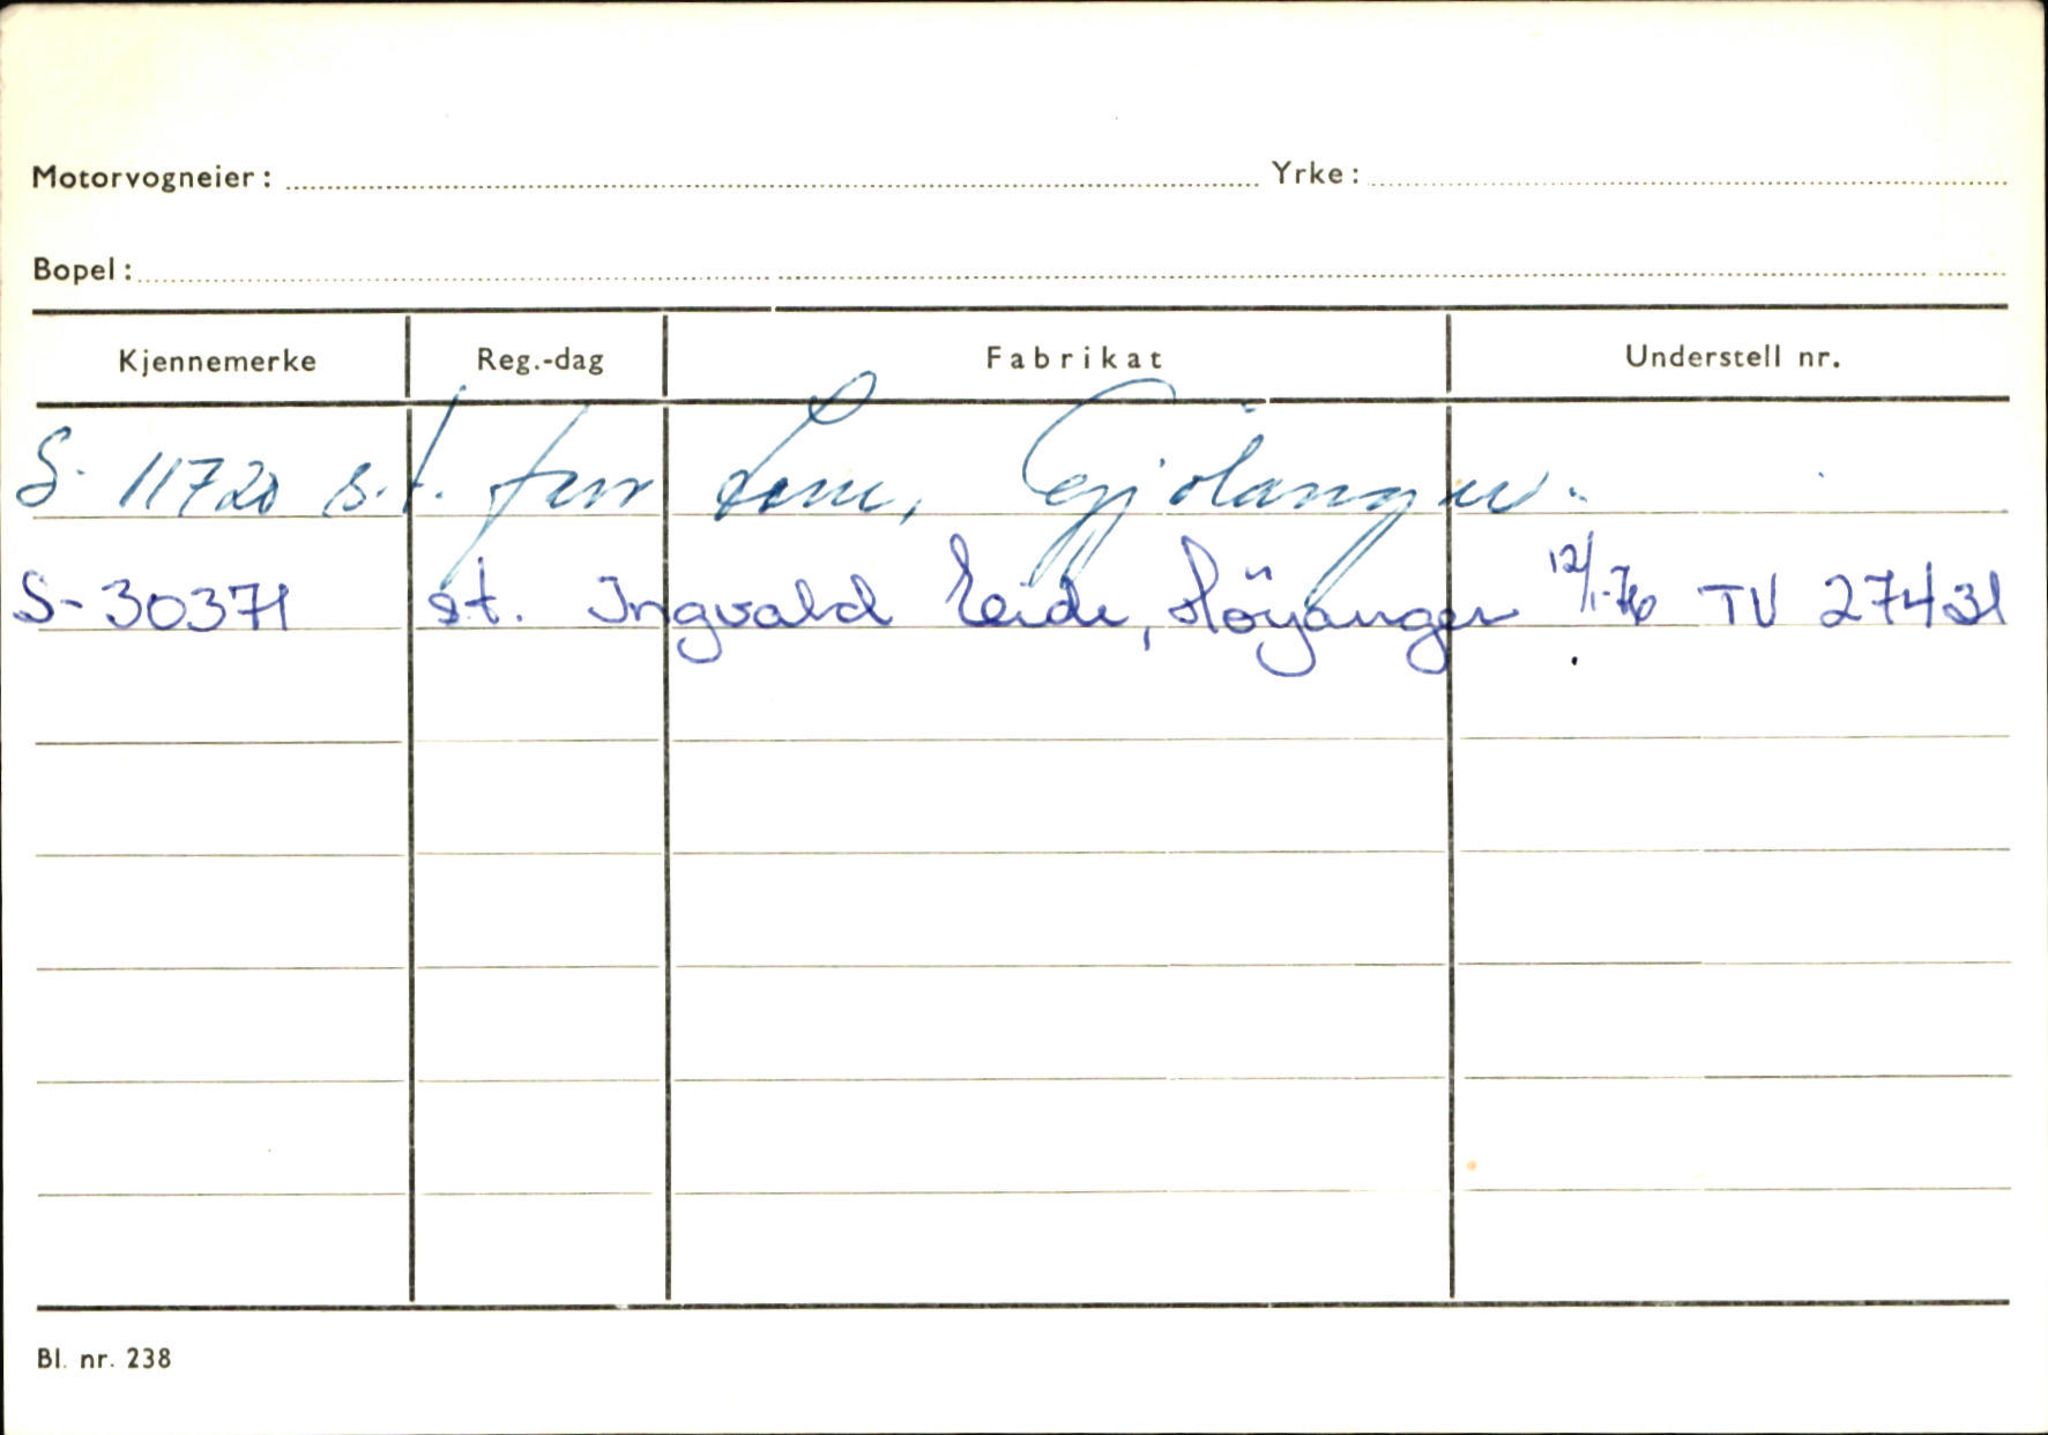 Motorvogneier: Yrke:
Bopel:
Kjennemerke Reg.-dag Fabrikat Understell nr.
S-11720 s.t. Lem, Gjölanger.
S-30371 st. Ingvald Eide, Höyanger 12/1-76 TV 27431
Bl. nr. 238